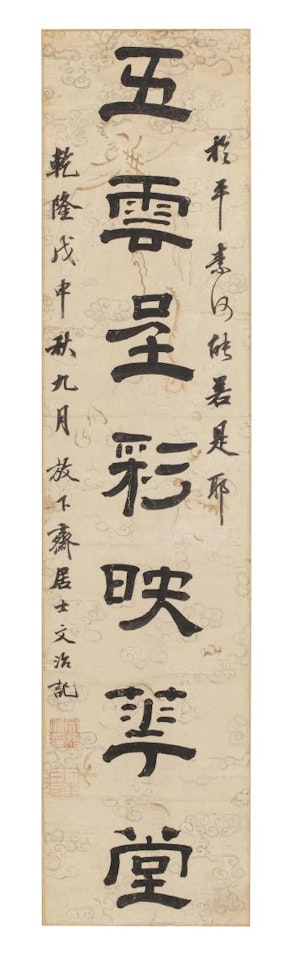 於平素何能若是耶
五雲呈彩映華堂
乾隆戊申秋九月放下齋居士文治記